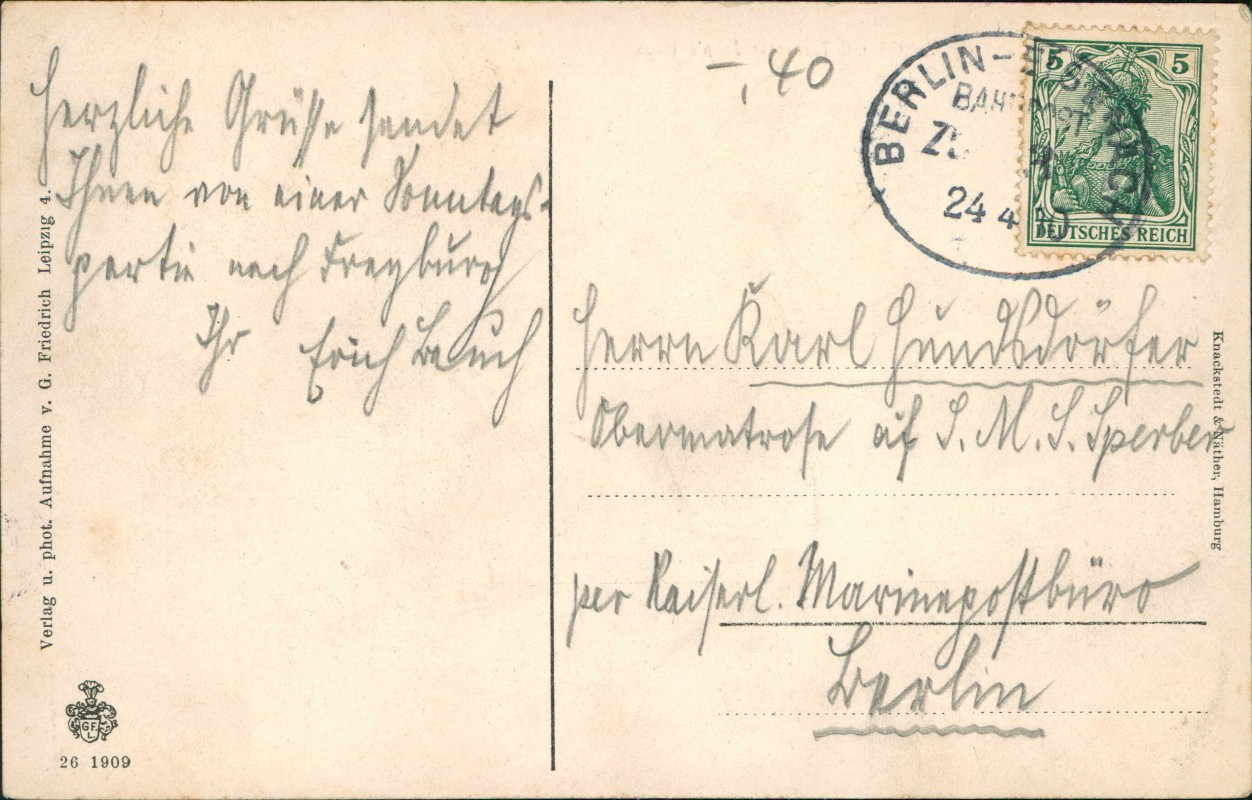 -,40
BERLIN - EISENACH
BAHNPOST
ZUG
24 4 10
5 5
DEUTSCHES REICH
Herzliche Grüsse sendet
Ihnen von einer Sonntags-
partie nach Freyburg
Ihr Erich Bauch
Herrn Karl Hundsdörfer
Obermatrose auf S. M. S. Sperber
per Kaiserl. Marinepostbüro
Berlin
Verlag u. phot. Aufnahme v. G. Friedrich Leipzig 4.
Knackstedt & Näther, Hamburg
G F.
L.
26 1909